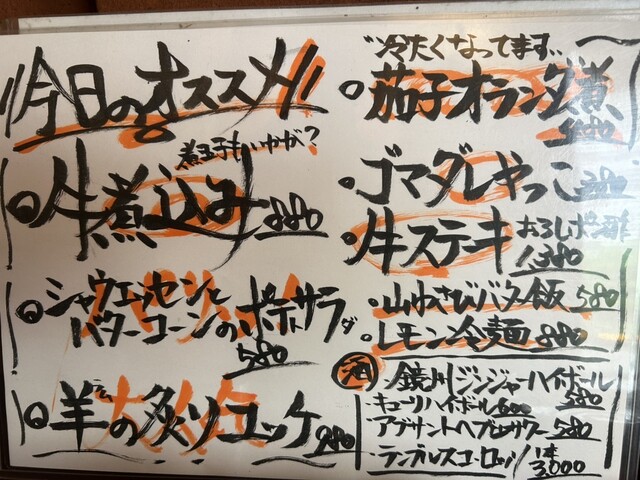 今日のオススメ!!
煮玉子もいかが?
牛煮込み 880
シャウエッセンと
バターコーンのポテトサラダ
580
羊の炙りユッケ 980
冷たくなってます
茄子オランダ煮
ゴマダレやっこ
牛ステーキ おろしポン酢
1380
山わさびバター飯 580
レモン冷麺 880
酒 鏡月ジンジャーハイボール
580
キューリハイボール 600
アブサントヘブンサワー 580
ランブルスコ・ロッソ 1本
3,000